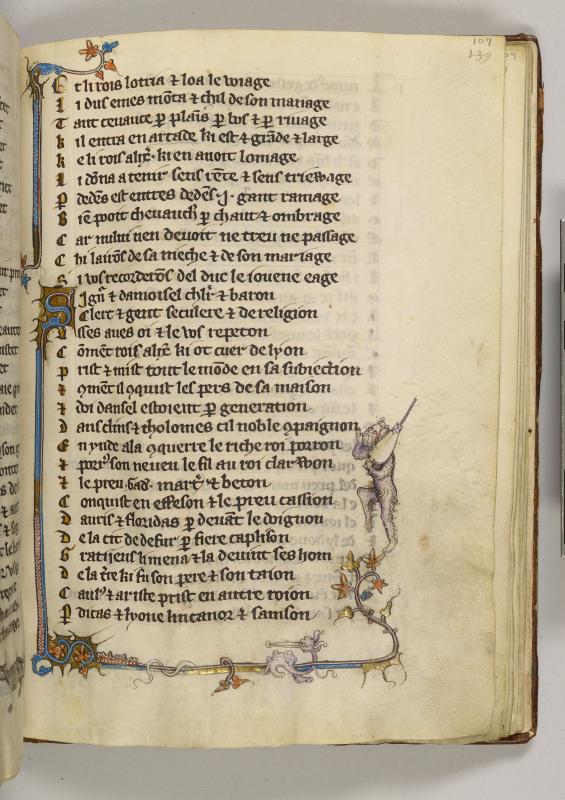 107
E t li rois lotria ⁊ loa le voiage
L i dus emes mōta ⁊ chil de son mariage
T ant cevauce ꝑ plaīs ꝑ bos ⁊ ꝑ rivage
k il entra en artade ki est ⁊ grāde ⁊ large
k e li rois alix̄. ki en avoit lomage
L i dōna a tenir sens rēte ⁊ sens triewage
P dedēs est entres dedēs .j. gant ramage
B iē pooit chevauch̄ ꝑ chaut ⁊ ombrage
C ar nului rien devoit ne treu ne passage
C hi lairōs de sa nieche ⁊ de son mariage
S i vos recorderōs del duc le jovene eage
S ign̄ ⁊ damoisel chlr̄ ⁊ baron
C lerc ⁊ gent seculere ⁊ de religion
V sses aves oi ⁊ le vos repeton
C ōmēt rois alix̄. ki ot cuer de lyon
P rist ⁊ mist tout le mōde en sa subiection
⁊ 9mēt il 9quist les pers de sa maison
⁊ doi dansel estoient ꝑ generation
D ans clins ⁊ tholomes cil noble 9paignon
E n ynde ala 9querre le riche roi porron
⁊ porr9 son neveu le fil au roi clarvon
⁊ le preu gad. mart̄ ⁊ beton
C onquist en effeson ⁊ le preu cassion
D auris ⁊ floridas ꝑ devāt le doignon
D e la cit de defur ꝑ fiere caplison
G ratijens li mena ⁊ la devint ses hom
D e la t̄re ki fu son pere ⁊ son taion
C aul9 ⁊ ariste prist en autre roion
P dicas ⁊ lyone lincanor ⁊ sanson